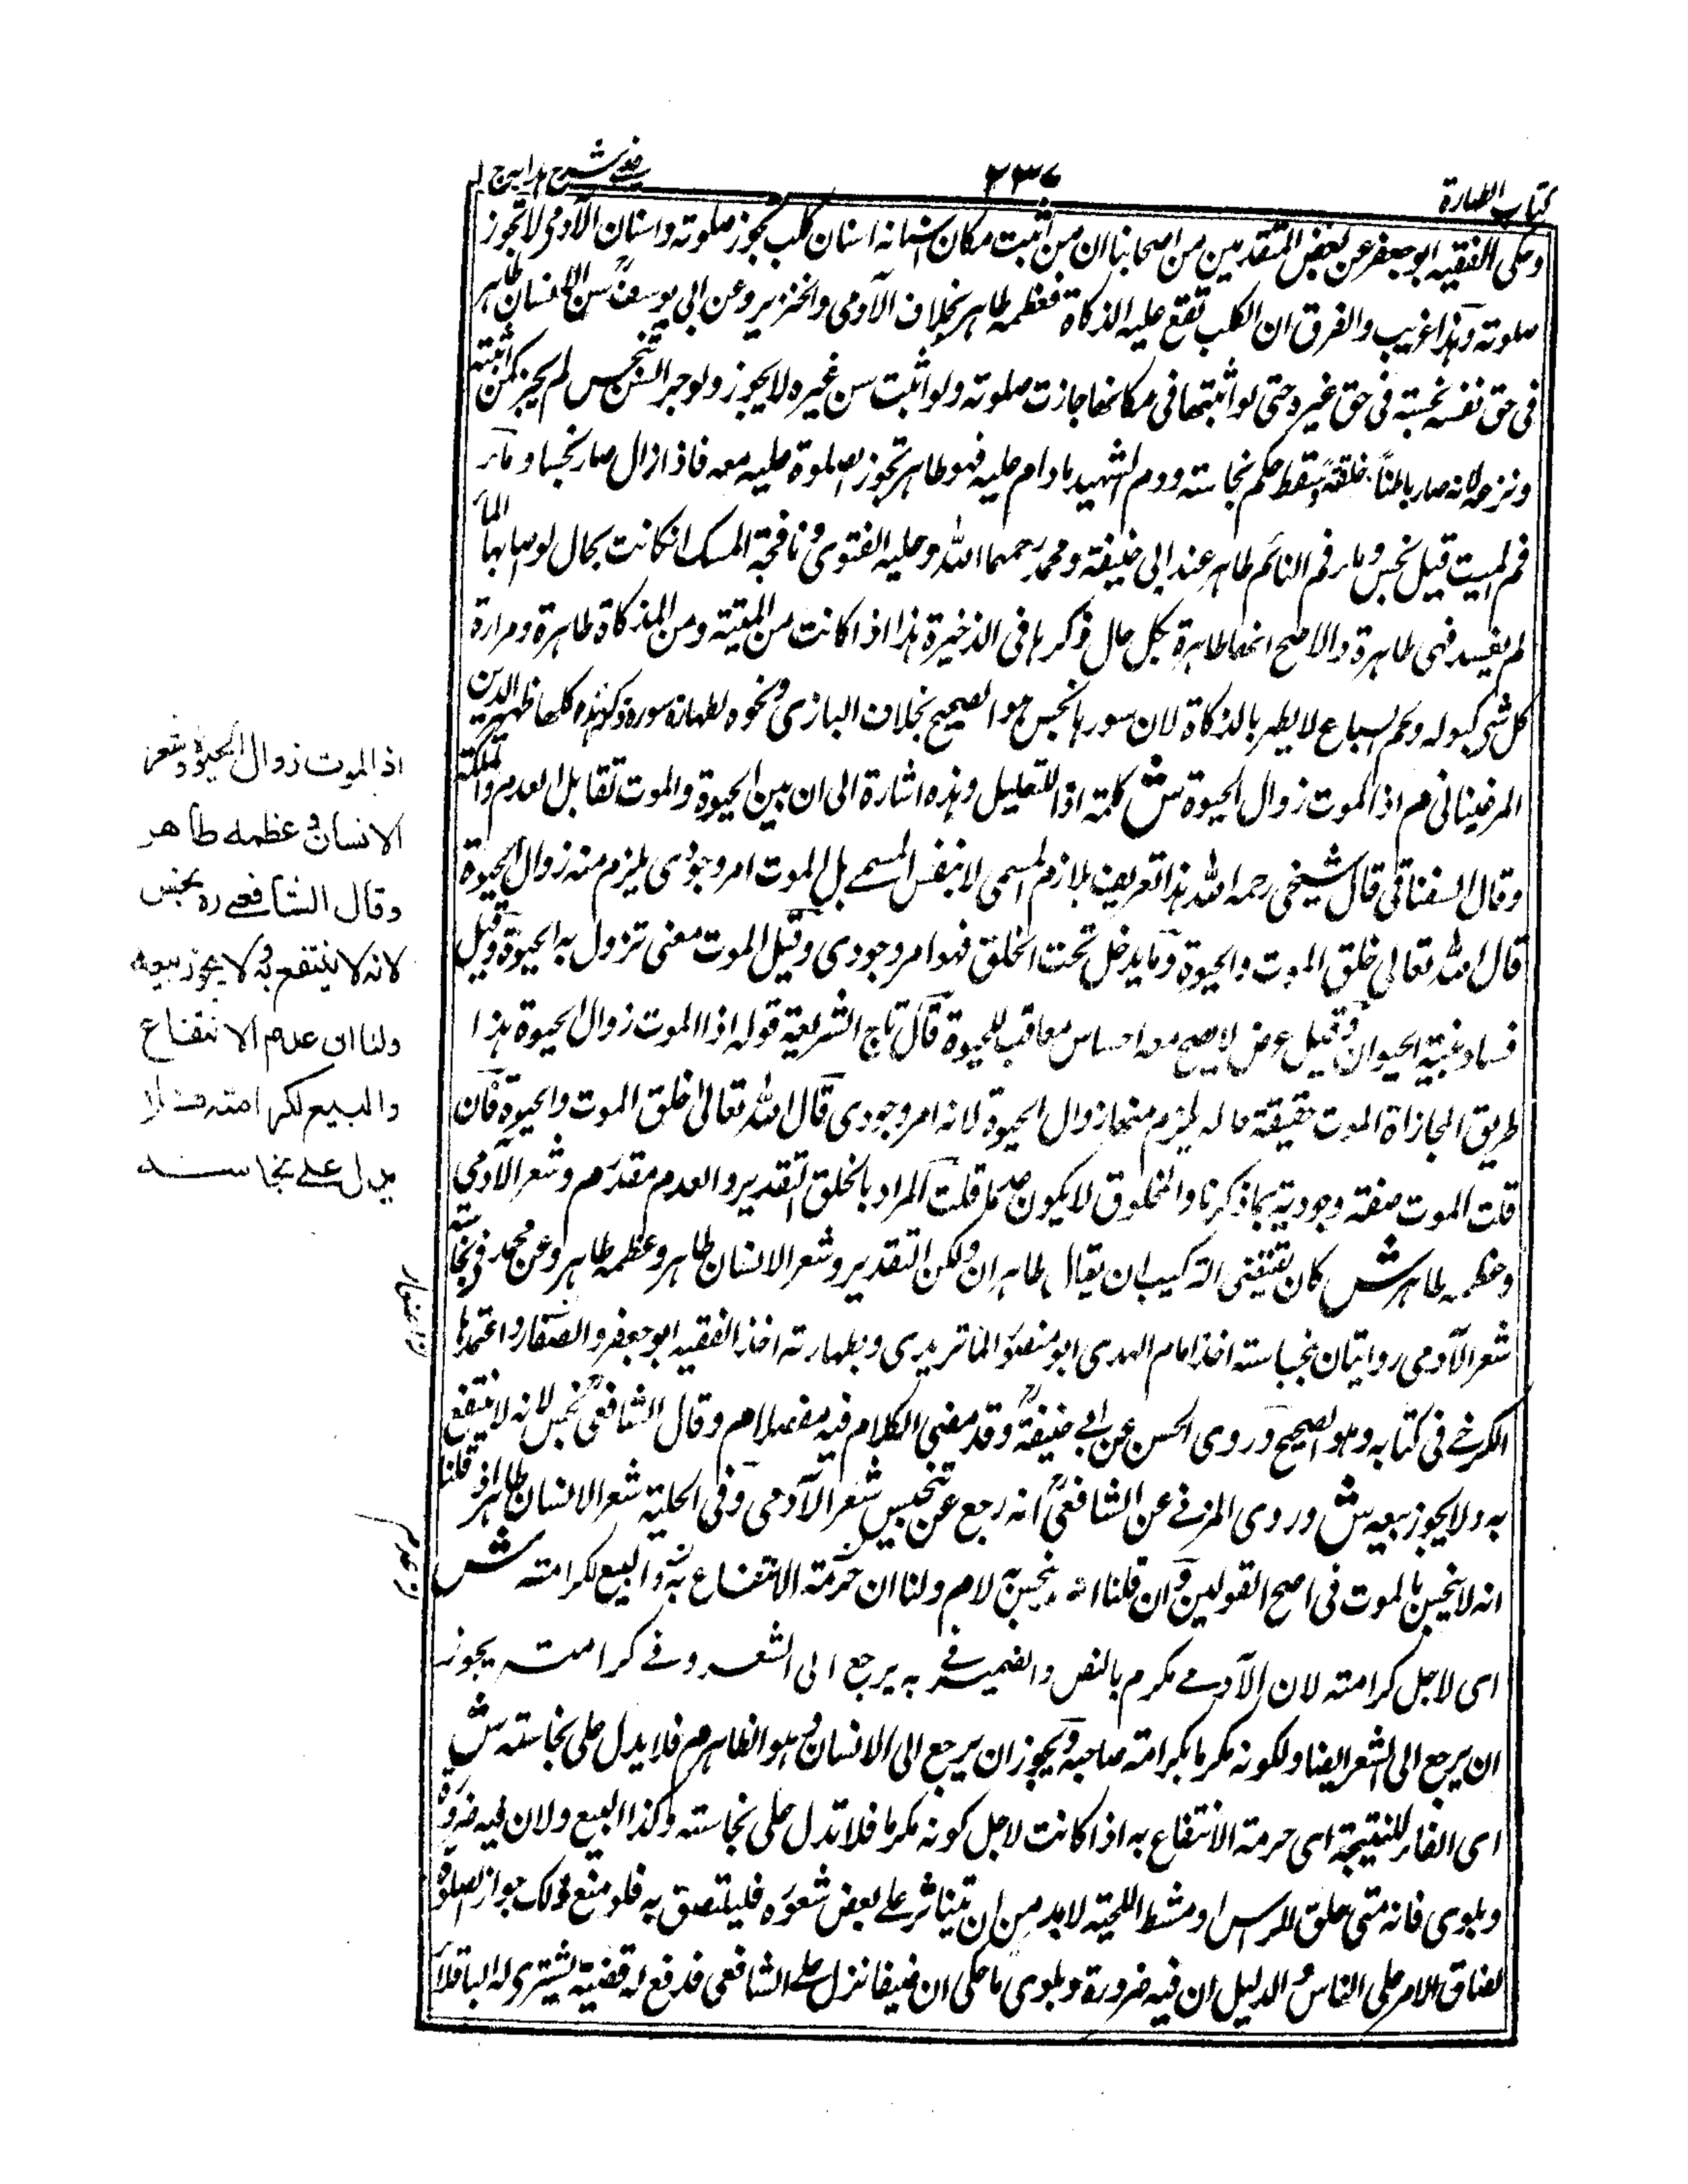 كتاب الطهارة
٢٣٧
في شرح هداية ج ١
وحكى الفقيه ابو جعفر عن بعض المتقدمين من اصحابنا ان من اثبت مكان اسنانه اسنان كلب يجوز صلوته واسنان الآدمي لا تجوز
صلوته وهذا غريب والفرق ان الكلب تقع عليه الذكاة فعظمه طاهر بخلاف الآدمي والخنزير وعن ابي يوسف سن الانسان طاهر
في حق نفسه نجسة في حق غيره حتى لو اثبتها في مكانها جازت صلوته ولو اثبت سن غيره لا يجوز ولو جبر السن نجس لم يجز كمن اثبته
ونزعه لانه صار باطنا خلقة فسقط حكم نجاسته ودم الشهيد ما دام عليه فهو طاهر تجوز الصلوة عليه معه فاذا زال صار نجسا وماء
فم الميت قيل نجس وماء فم النائم طاهر عند ابي حنيفة ومحمد رحمهما الله وعليه الفتوى ونافجة المسك ان كانت بحال لو اصابها الماء
لم يفسد فهي طاهرة والاصح انها طاهرة بكل حال ذكرها في الذخيرة هذا اذا كانت من الميتة ومن المذكاة طاهرة ومرارة
كل شي كبوله ولحم السباع لا يطهر بالذكاة لان سورها نجس هو الصحيح بخلاف البازي ونحوه لطهارة سوره ذكر هذه كلها ظهير الدين
المرغيناني م اذ الموت زوال الحيوة ش كلمة اذ للتعليل وهذه اشارة الى ان بين الحيوة والموت تقابل العدم والملكة
وقال السغناقي قال شيخي رحمه الله هذا تعريف بلازم المسمى لا بنفس المسمى بل الموت امر وجودي يلزم منه زوال الحيوة
قال الله تعالى خلق الموت والحيوة وما يدخل تحت الخلق فهو امر وجودي وقيل الموت معنى تزول به الحيوة وقيل
فساد بنية الحيوان وقيل عرض لا يصح معه احساس معاقب للحيوة قال تاج الشريعة قوله اذ الموت زوال الحيوة هذا
طريق المجازاة الموت حقيقة حالة يلزم منها زوال الحيوة لانه امر وجودي قال الله تعالى خلق الموت والحيوة فان
قلت الموت صفة وجودية بما ذكرنا والمخلوق لا يكون قلت المراد بالخلق التقدير والعدم مقدر م وشعر الآدمي
وعظمه طاهر ش كان يقتضي التركيب ان يقال طاهران ولكن التقدير وشعر الانسان طاهر وعظمه طاهر وعن محمد في نجاسة
شعر الآدمي روايتان بنجاسته اخذ امام الهدى ابو منصور الماتريدي وبطهارته اخذ الفقيه ابو جعفر والصفار واعتمدها
الكرخي في كتابه وهو الصحيح وروى الحسن عن ابي حنيفة وقد مضى الكلام فيه مفصلا م وقال الشافعي نجس لانه لا ينتفع
به ولا يجوز بيعه ش وروى المزني عن الشافعي انه رجع عن تنجيس شعر الآدمي وفي الحلية شعر الانسان طاهر اذ قلنا
انه لا ينجس بالموت في اصح القولين وان قلنا انه ينجس به لا م ولنا ان حرمة الانتفاع به والبيع لكرامته ش
اى لاجل كرامته لان الآدمي مكرم بالنص والضمير في به يرجع الى الشعر وفي كرامته يجوز
ان يرجع الى الشعر ايضا ولكونه مكرما بكرامة صاحبه ويجوز ان يرجع الى الانسان وهو الظاهر م فلا يدل على نجاسته ش
اى الفاء للنتيجة اى حرمة الانتفاع به اذا كانت لاجل كونه مكرما فلا تدل على نجاسته وكذا البيع ولان فيه ضرورة
وبلوى فانه متى حلق الراس او مشط اللحية لا بد من ان يتناثر على بعض شعوره فيلتصق به فلو منع ذلك جواز الصلوة
لضاق الامر على الناس الدليل ان فيه ضرورة وبلوى ما حكى ان ضيفا نزل على الشافعي فدفع له قضية يشتري له الباقلاء
اذ الموت زوال الحيوة وشعر
الانسان و عظمه طاهر
وقال الشافعي ره نجس
لانه لا ينتفع به و لا يجوز بيعه
ولنا ان عدم الانتفاع
والبيع لكرامته فلا
يدل على نجاسته